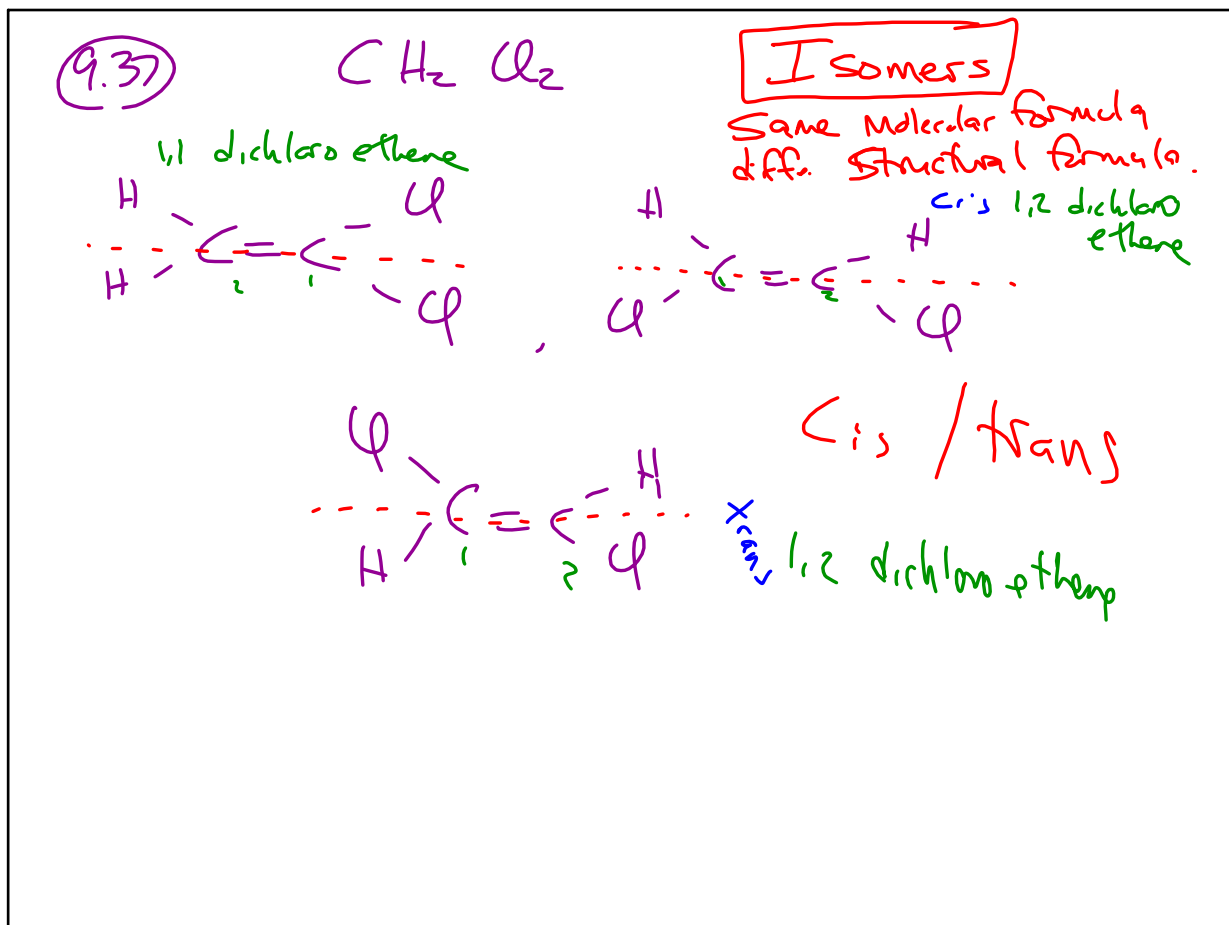 9.37
CH₂ Cl₂
Isomers
Same Molecular formula
diff. Structural formula.
1,1 dichloro ethene
cis 1,2 dichloro
ethene
H Cl
C = C
H Cl
2 1
H H
C = C
Cl Cl
1 2
,
Cis / trans
Cl H
C = C
H Cl
1 2
trans 1,2 dichloro ethene